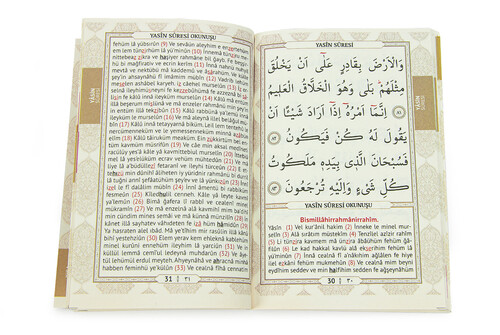 YASÎN SÛRESİ
وَالْاَرْضَ بِقَادِرٍ عَلٰٓى اَنْ يَخْلُقَ
مِثْلَهُمْ بَلٰى وَهُوَ الْخَلَّاقُ الْعَل۪يمُ
﴿٨١﴾ اِنَّمَٓا اَمْرُهُٓ اِذَٓا اَرَادَ شَيْـًٔا اَنْ
يَقُولَ لَهُ كُنْ فَيَكُونُ ﴿٨٢﴾
فَسُبْحَانَ الَّذ۪ي بِيَدِه۪ مَلَكُوتُ
كُلِّ شَيْءٍ وَاِلَيْهِ تُرْجَعُونَ ﴿٨٣﴾
YASÎN SÛRESİ OKUNUŞU
Bismillâhirrahmânirrahîm.
Yâsîn (1) Vel kurânil hakîm (2) İnneke le minel mur-
selîn (3) Alâ sırâtın mustekîm (4) Tenzîlel azîzir rahîm
(5) Li tünzira kavmem mâ ünzira âbâühüm fehüm gâ-
filûn (6) Le kad hakkal kavlü alâ ekserihim fehüm lâ
yü'minûn (7) İnnâ cealnâ fî a'nâkıhim ağlâlen fe hiye
ilel ezkâni fehüm mukmehûn (8) Ve cealnâ mim beyni
eydîhim sedden ve min halfihim sedden fe ağşeynâhüm
30 | ٣٠
YÂSÎN
SÛRESİ
YASÎN SÛRESİ OKUNUŞU
fehüm lâ yübsırûn (9) Ve sevâün aleyhim e enzertehüm
em lem tünzirhüm lâ yü'minûn (10) İnnemâ tünziru me-
nittebeaz zikra ve haşiyer rahmâne bil ğayb. Fe beşşirhü
bi mağfirativ ve ecrin kerîm (11) İnnâ nahnü nuhyil
mevtâ ve nektübü mâ kaddemû ve âsârahüm. Ve külle
şey'in ahsaynâhü fî imâmim mübîn (12) Vadrib lehüm
meselen ashâbel karyeh. iz câehel murselûn (13) İz er-
selnâ ileyhimüsneyni fe kezzebûhümâ fe azzeznâ bi
sâlisin fe kâlû innâ ileyküm murselûn (14) Kâlû mâ entüm
illâ beşerum mislünâ ve mâ enzeler rahmânü min şey'in
in entüm illâ tekzibûn (15) Kâlû rabbünâ ya'lemü innâ
ileyküm le murselûn (16) Ve mâ aleynâ illel belâğul mü-
bîn (17) Kâlû innâ tetayyernâ biküm. Lein lem tentehû le-
nercümenneküm ve le yemessenneküm minnâ azâbün
elîm (18) Kâlû tâirüküm meaküm. Ein zükkirtüm. Bel en-
tüm kavmüm müsrifûn (19) Ve câe min aksal medîneti
racülüy yes'â kâle yâ kavmittebiul murselîn (20) İttebiû
mel lâ yes'elüküm ecrav vehüm mühtedûn (21) Ve mâ
liye lâ a'büdüllezî fetaranî ve ileyhi türceûn (22) Eettehi-
zü min dûnihî âliheten iy yüridnir rahmânü bi durril lâ
tuğni annî şefâatühüm şey'ev ve lâ yünkızûn (23) İnnî
izel le fî dalâlim mübîn (24) İnnî âmentü bi rabbiküm
fesmeûn (25) Kîledhulil cenneh. Kâle yâ leyte kavmî
ya'lemûn (26) Bimâ ğafera lî rabbî ve cealenî minel
mükramîn (27) Ve mâ enzelnâ alâ kavmihî mim ba'dihî
min cündim mines semâi ve mâ künnâ münzilîn (28) İn
kânet illâ sayhatev vâhideten fe izâ hüm hâmidûn (29)
Ya hasraten alel ibâd. Mâ ye'tîhim mir rasûlin illâ kânû
bihî yestehziûn (30) Elem yerav kem ehleknâ kablehüm
minel kurûni ennehüm ileyhim lâ yarciûn (31) Ve in kül-
lül lemmâ cemîul ledeynâ muhdarûn (32) Ve âye-
tül lehümül erdul meyteh. Ahyeynâhâ ve ahracnâ minhâ
habben feminhü ye'külûn (33) Ve cealnâ fîhâ cennatim
31 | ٣١
YÂSÎN
SÛRESİ